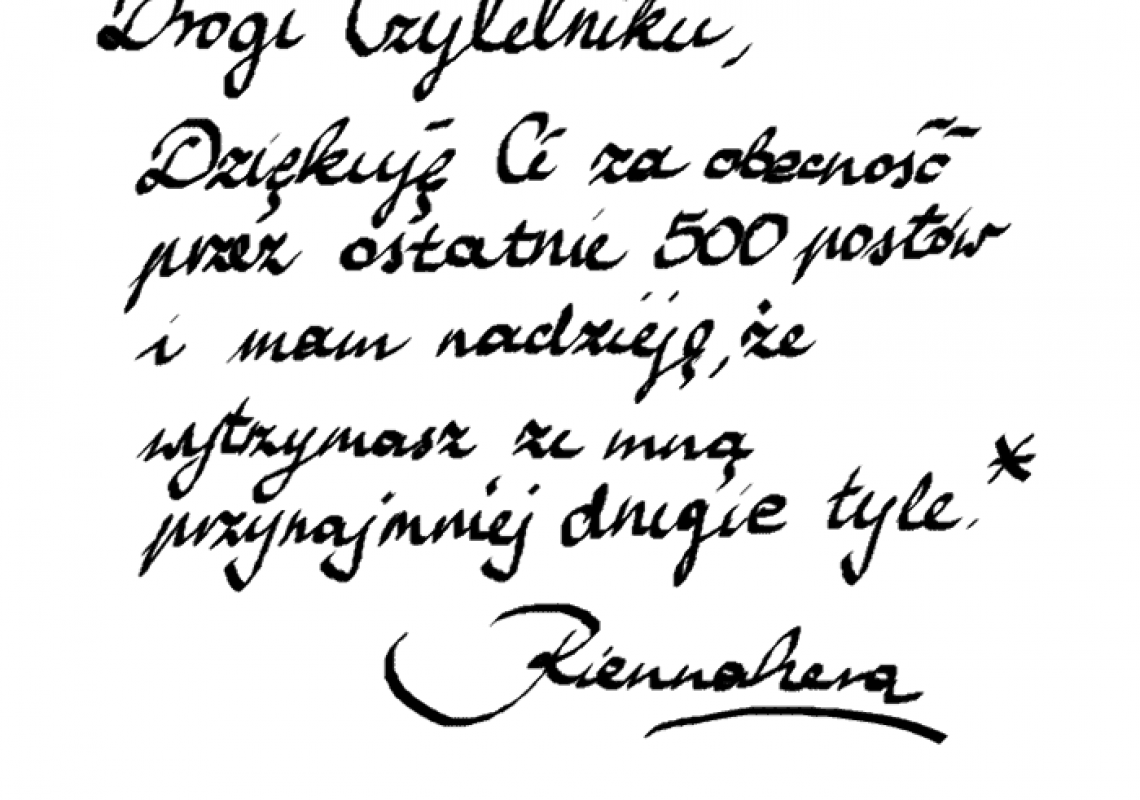 Drogi Czytelniku,
Dziękuję Ci za obecność
przez ostatnie 500 postów
i mam nadzieję, że
wytrzymasz ze mną
przynajmniej drugie tyle.*
Riennahera